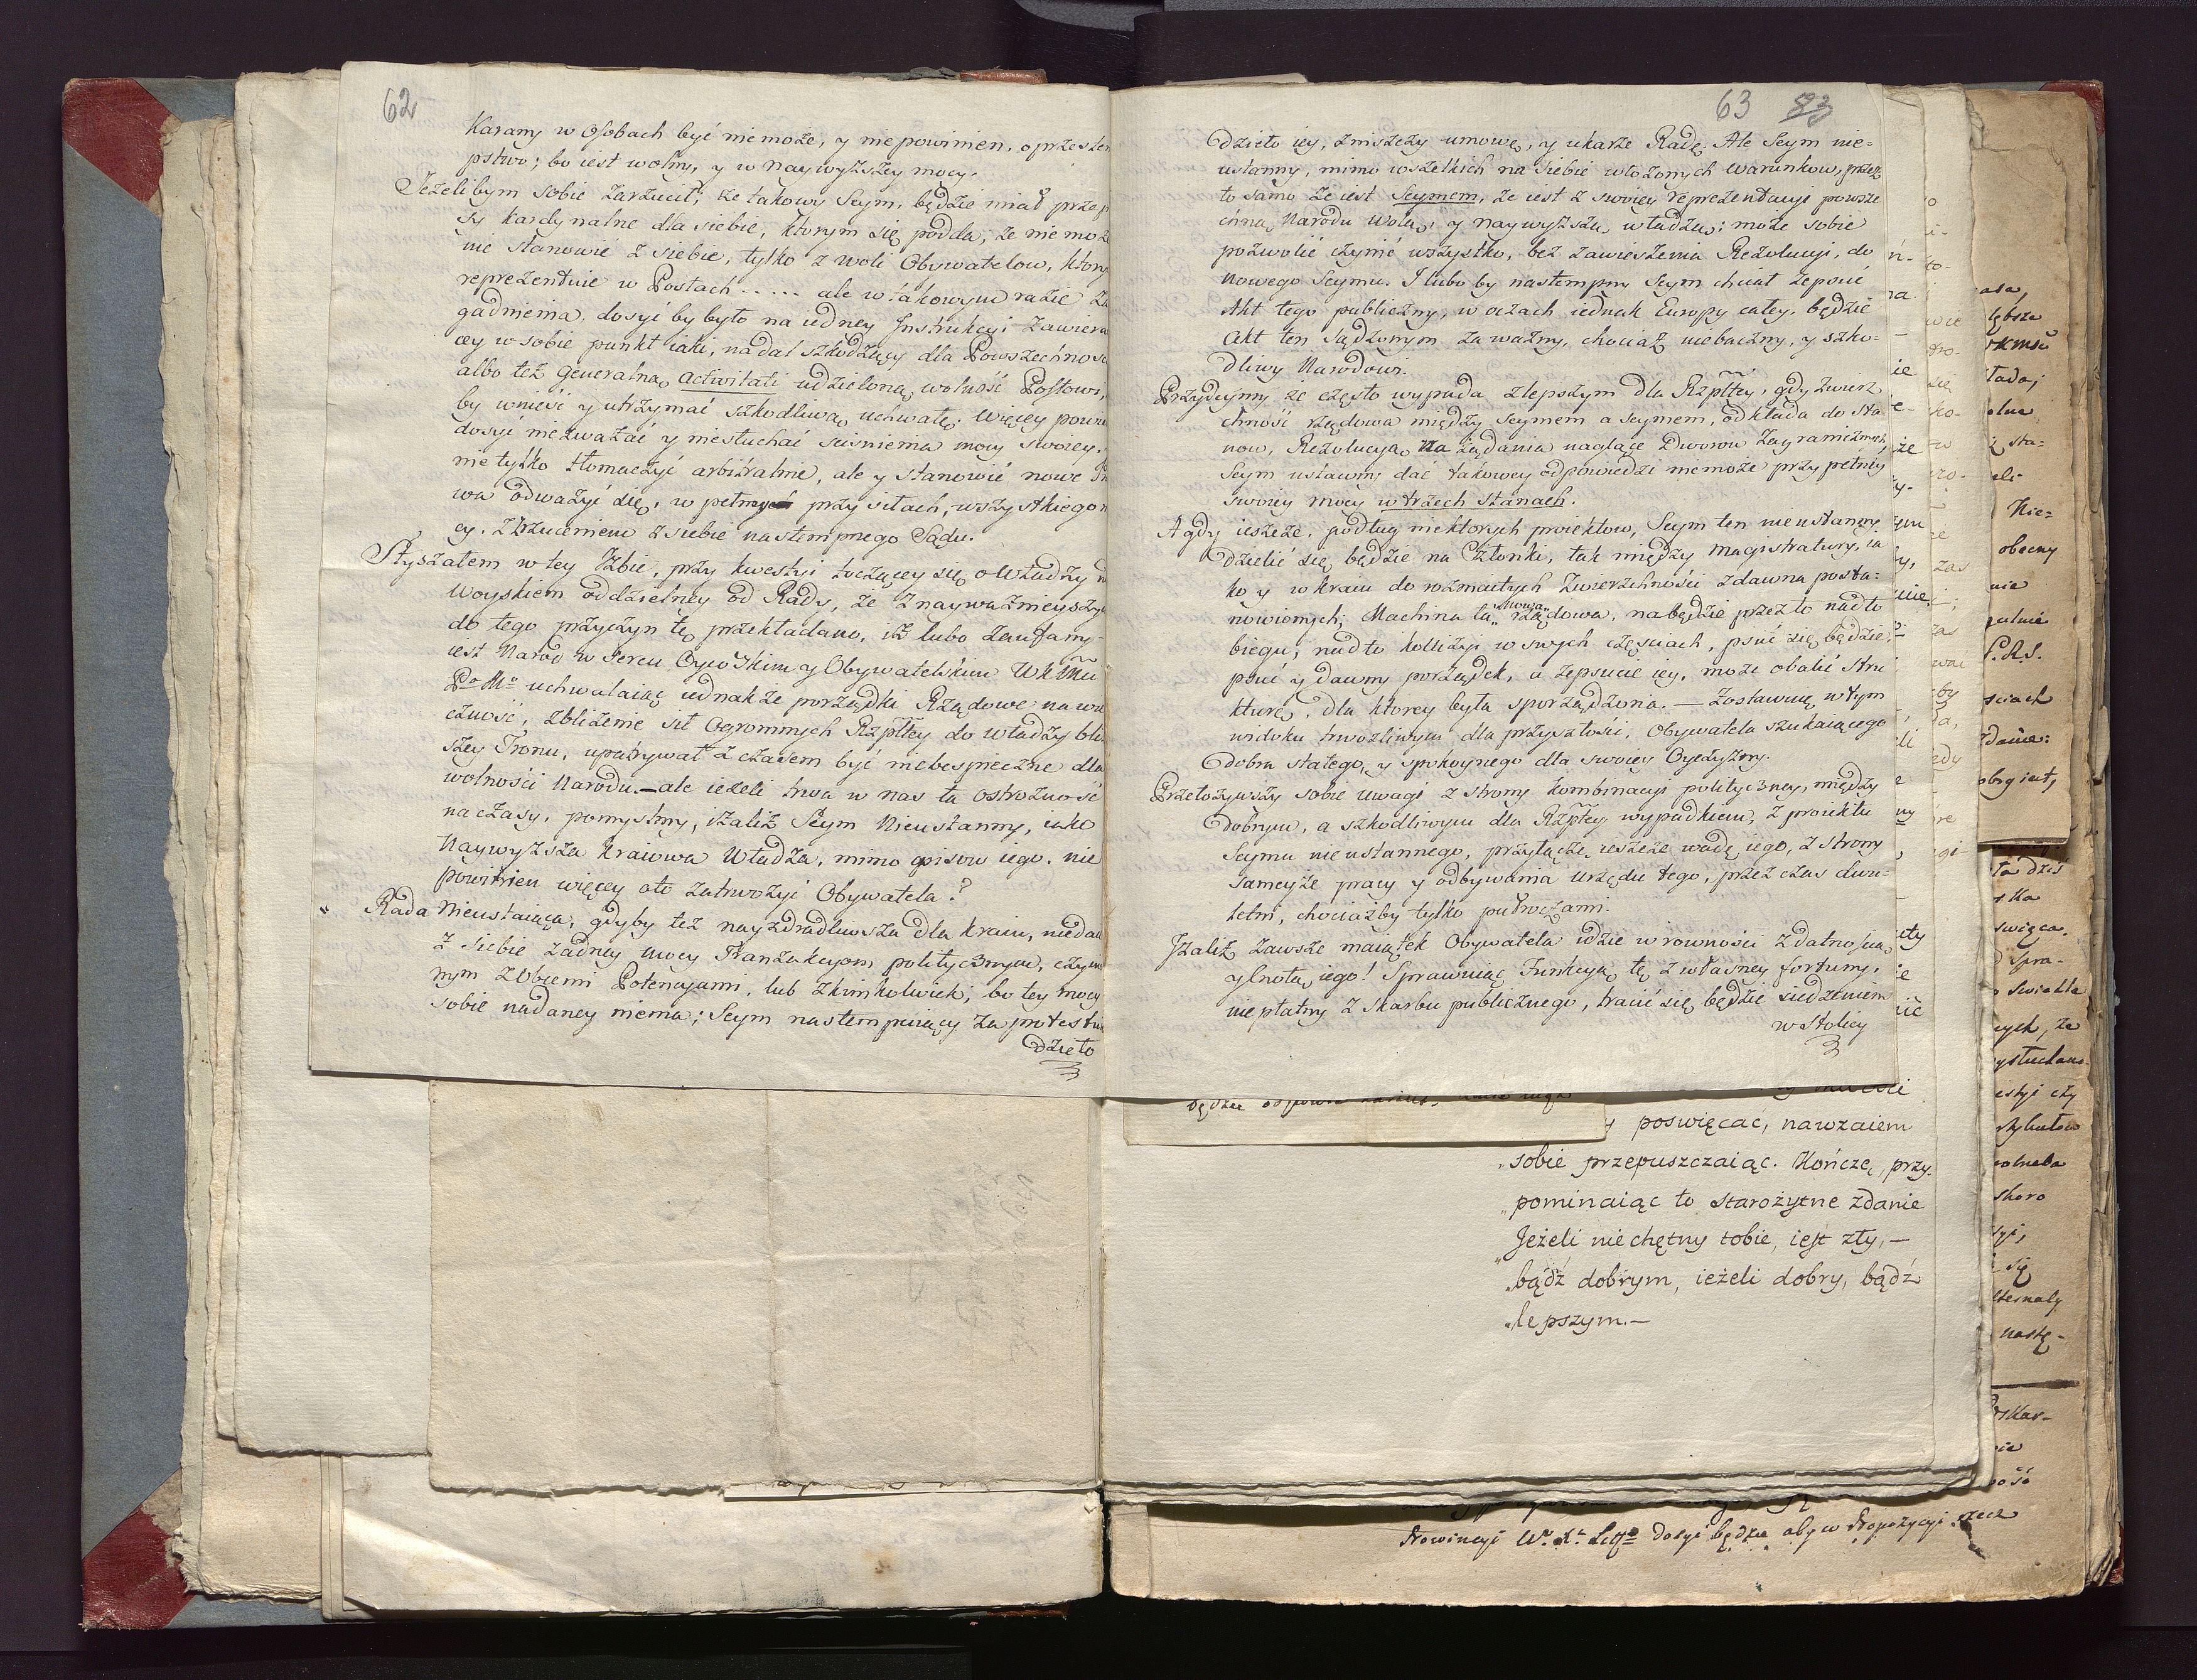 62
Karany w Osobach być niemoże, y niepowinien, o przestę
pstwo; bo iest wolny, y w naywyższey mocy.
Jeżelibym sobie zarzucił; że takowy Seym, będzie miał przep
sy kardynalne dla siebie, ktorym się podda; że niemoże
nic stanowić z siebie, tylko z woli Obywatelow, ktory
reprezentuie w Posłach ..... ale w takowym razie za
gadnienia, dosyć by było na iedney Instrukcyi zawiera
cey w sobie punkt iaki, nadal szkodzący dla Powszechnos
albo też generalną activitati udzieloną wolność Posłowi,
by wnieść y utrzymać szkodliwą uchwałę. Więcey powie
dosyć niezważać y niesłuchać sumnienia mocy swoiey,
nie tylko tłomaczyć arbitralnie, ale y stanowić nowe Pra
wa odważyć się, w pełney przy siłach, wszystkiego
cy. Zrzuceniem z siebie nastempnego Sądu.
Słyszałem w tey Izbie, przy kwestyi toczącey się o Władzy n
Woyskiem oddzielney od Rady, że z naywaznieyszych
do tego przyczyn tę przekładano, iż lubo zaufany
iest Narod w Sercu Oycowskim y Obywatelskim WKMci
Pa Mo uchwalaiąc iednakże porządki Rządowe na wie
czność, zbliżenie sił Ogromnych Rzpltey do władzy bli
szey Tronu, upatrywał z czasem być niebespieczne dla
wolności Narodu.— ale ieżeli trwa w nas ta ostrożność
na czasy, pomyślny, izaliż Seym Nieustanny, iako
Naywyższa kraiowa Władza, mimo opisow iego, nie
powinien więcey oto zatrwożyć Obywatela?
" Rada Nieustaiąca, gdyby też nayzdradliwsza dla kraiu, nieda
z siebie żadney mocy Tranzakcyom politycznym, czyn
nym z Obcemi Potencyami, lub z kimkolwiek; bo tey mocy
sobie nadaney niema; Seym nastempuiący za protestu
dzieło
63 83
dzieło iey, zniszczy umowę, y ukarze Radę. Ale Seym nie=
ustanny, mimo wszelkich na siebie włożonych warunkow, przez
to samo że iest Seymem, że iest z swoiey reprezentacyi powsze
chną Narodu wolą, y naywyższą władzą; może sobie
pozwolić czynić wszystko, bez zawieszenia Rezolucyi, do
Nowego Seymu. I lubo by nastempny Seym chciał zepsuć
Akt tego publiczny, w oczach iednak Europy całey, będzie
Akt ten sądzonym za ważny, chociaż niebaczny, y szko=
dliwy Narodowi.
Przydaymy że często wypada z lepszym dla Rzpltey, gdy zwierz
chność rządowa między Seymem a Seymem, odkłada do Sta
now, Rezolucyą na żądania naglące Dworow Zagranicznych,
Seym ustawny dać takowey odpowiedzi niemoże przy pełney
swoiey mocy w trzech Stanach.
A gdy ieszcze, podług niektorych proiektow, Seym ten nieustanny
dzielić się będzie na Członki, tak między Magistratury, ia
ko y w kraiu do rozmaitych Zwierzchności zdawna posta=
nowionych; Machina ta rządowa, nabędzie przez to nadto
biegu, nadto kollizyi w swych częściach, psuć się będzie,
psuć y dawny porządek, a zepsucie iey, może obalić stru
kturę, dla ktorey była sporządzona. — Zostawuię w tym
widoku trwożliwym dla przyszłości, Obywatela szukaiącego
dobra stałego, y spokoynego dla swoiey Oyczyzny.
Przełożywszy sobie uwagi z strony kombinacyi polityczney, między
dobrym, a szkodliwym dla Rzpltey wypadkiem, z proiektu
Seymu nieustannego, przyłączę ieszcze wadę iego, z strony
sameyże pracy y odbywania urzędu tego, przez czas dwu=
letni, chociażby tylko putroczami.
Izaliż zawsze maiątek Obywatela idzie w rowności z datnością
y cnotą iego! Sprawuiąc Funkcyą tę z własney fortuny,
nie płatny z Skarbu publicznego, tracić się będzie siedzeniem
w Stolicy
poswięcać, nawzaiem
"sobie przepuszczaiąc. Kończę, przy
"pominaiąc to starożytne zdanie
"Jeżeli niechętny tobie, iest zły, —
"bądź dobrym, ieżeli dobry, bądź
"lepszym.—
Prowincyi W. X. Litt° dosyć będzie aby w Propozycyi